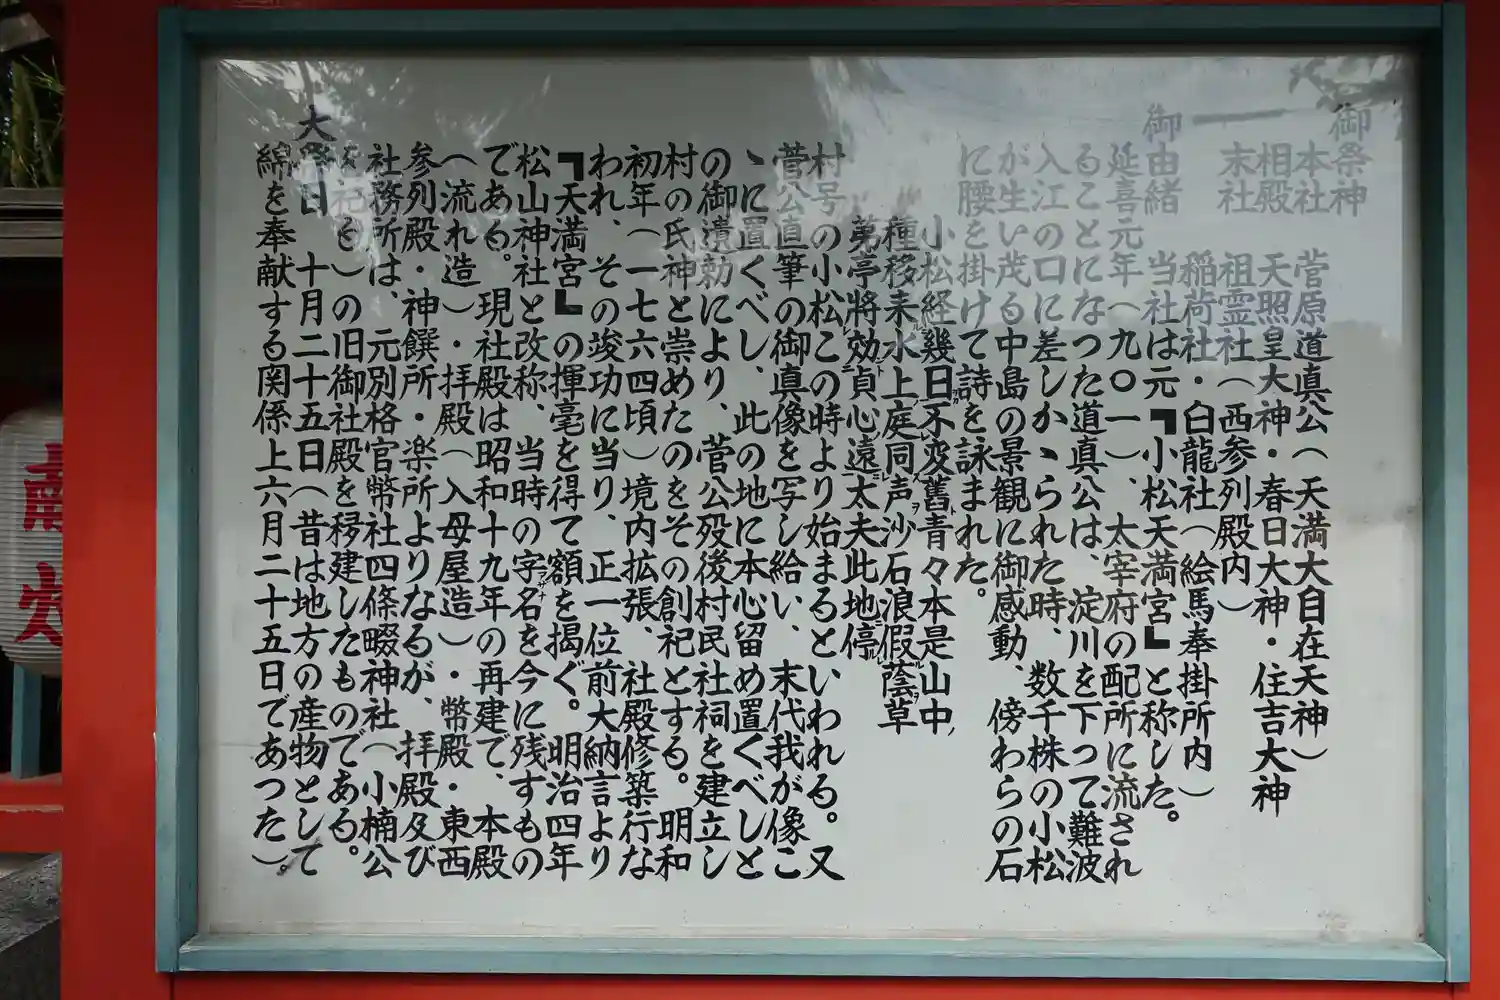 御祭神
本社 菅原道真公(天満大自在天神)
相殿 天照皇大神・春日大神・住吉大神
末社 祖霊社(西参列殿内)
稲荷社・白龍社(絵馬奉掛所内)
御由緒 当社は元『小松天満宮』と称した。
延喜元年(九〇一)、太宰府の配所に流され
ることになった道真公は、淀川を下って難波
入江の口に差しかゝられた時、数千株の小松
が生い茂る中島の景観に御感動、傍わらの石
に腰を掛けて詩を詠まれた。
小松経幾日不変舊青々本是山中
種移来水上庭同声沙石浪假蔭草
苐亭將効貞心遠太夫此地停
村号の小松この時より始まるといわれる。又
菅公直筆の御真像を写し給い、末代我が像こ
ゝに置くべし、此の地に本心留め置くべしと
の御遺勅により、菅公歿後村民社祠を建立し
村の氏神と崇めたのをその創祀とする。明和
初年(一七六四頃)境内拡張、社殿修築行な
われ、その竣功に当り、正一位前大納言より
『天満宮』の揮毫を得て額を掲ぐ。明治四年
松山神社と改称、当時の字名を今に残すもの
である。現社殿は昭和十九年の再建で、本殿
(流れ造)・拝殿(入母屋造)・幣殿・東西
参列殿・神饌所・楽所よりなるが、拝殿及び
社務所は、元別格官幣社四條畷神社(小楠公
を祀る)の旧御社殿を移建したものである。
大祭日 十月二十五日(昔は地方の産物として
綿を奉献する関係上六月二十五日であった)。